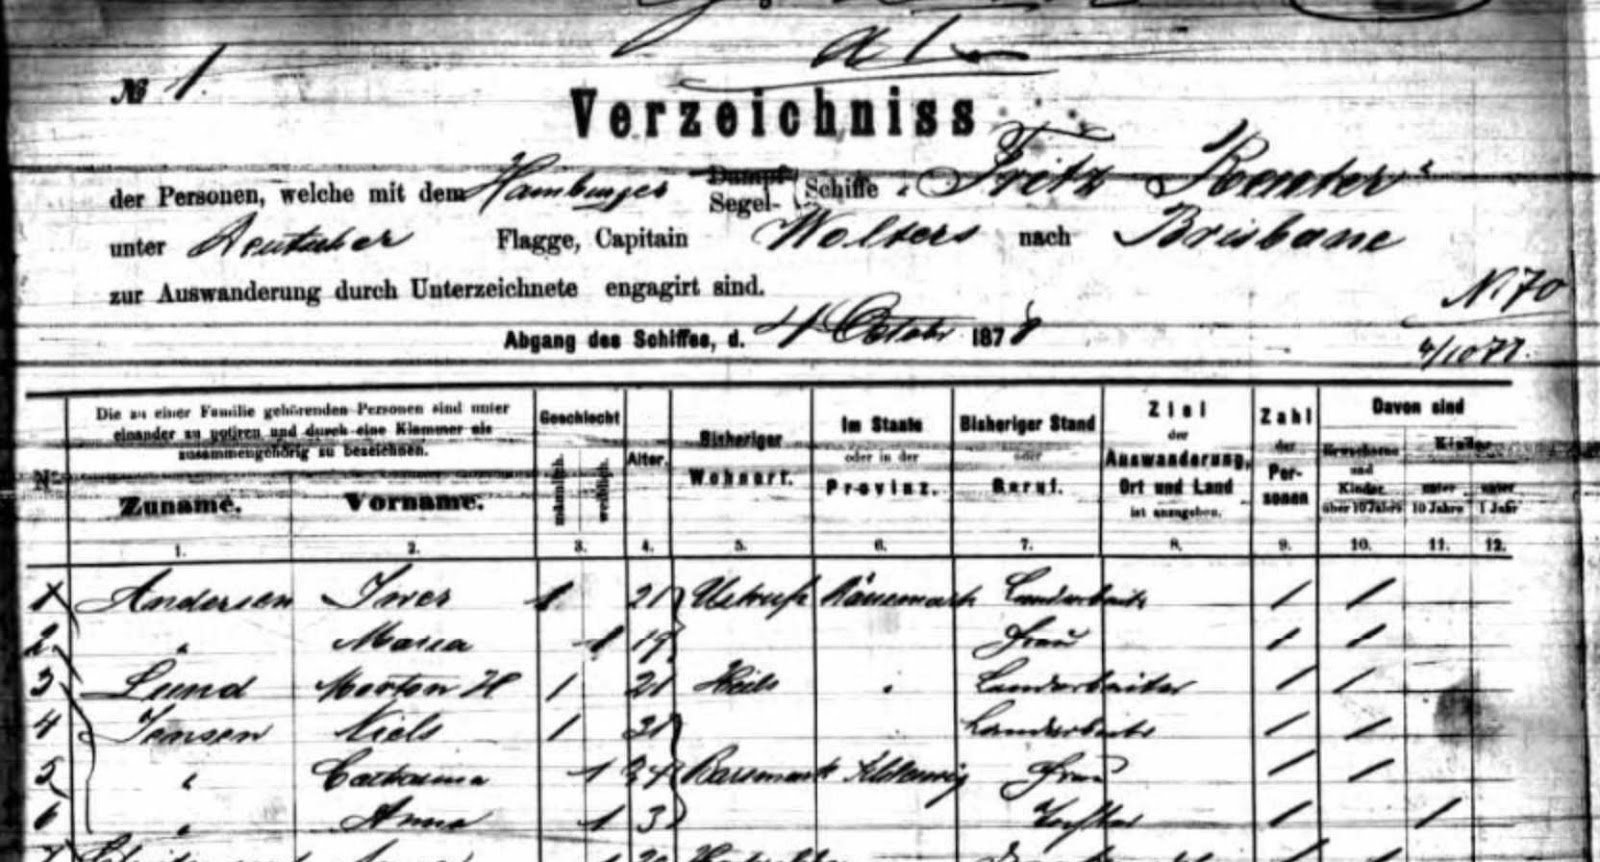 № 1.
Verzeichniss
der Personen, welche mit dem Hamburger Dampf- Segel- Schiffe „Fritz Reuter“
unter Deutscher Flagge, Capitain Wolters nach Brisbane
zur Auswanderung durch Unterzeichnete engagirt sind.
No 70
Abgang des Schiffes, d. 4 October 1878
4/10 78.
Die zu einer Familie gehörenden Personen sind unter
einander zu notiren und durch eine Klammer als
zusammengehörig zu bezeichnen.
Nr.
Zuname.
Vorname.
Geschlecht
männlich.
weiblich.
Alter.
Bisheriger
Wohnort.
Im Staate
oder in der
Provinz.
Bisheriger Stand
oder
Beruf.
Ziel
der
Auswanderung,
Ort und Land
ist anzugeben.
Zahl
der
Per-
sonen
Davon sind
Erwachsene
und
Kinder
über 10 Jahre
Kinder
unter
10 Jahre
unter
1 Jahr
1. 2. 3. 4. 5. 6. 7. 8. 9. 10. 11. 12.
1 Andersen Iwer 1 21 Dänemark Landarbeiter 1 1
2 " Maria 1 19 Frau 1 1
3 Lund Morten H 1 21 Heils " Landarbeiter 1 1
4 Jensen Niels 1 31 Landarbeiter 1 1
5 " Catharina 1 24 Barsmark Schleswig Frau 1 1
6 " Anna 1 3 Tochter 1 1
7